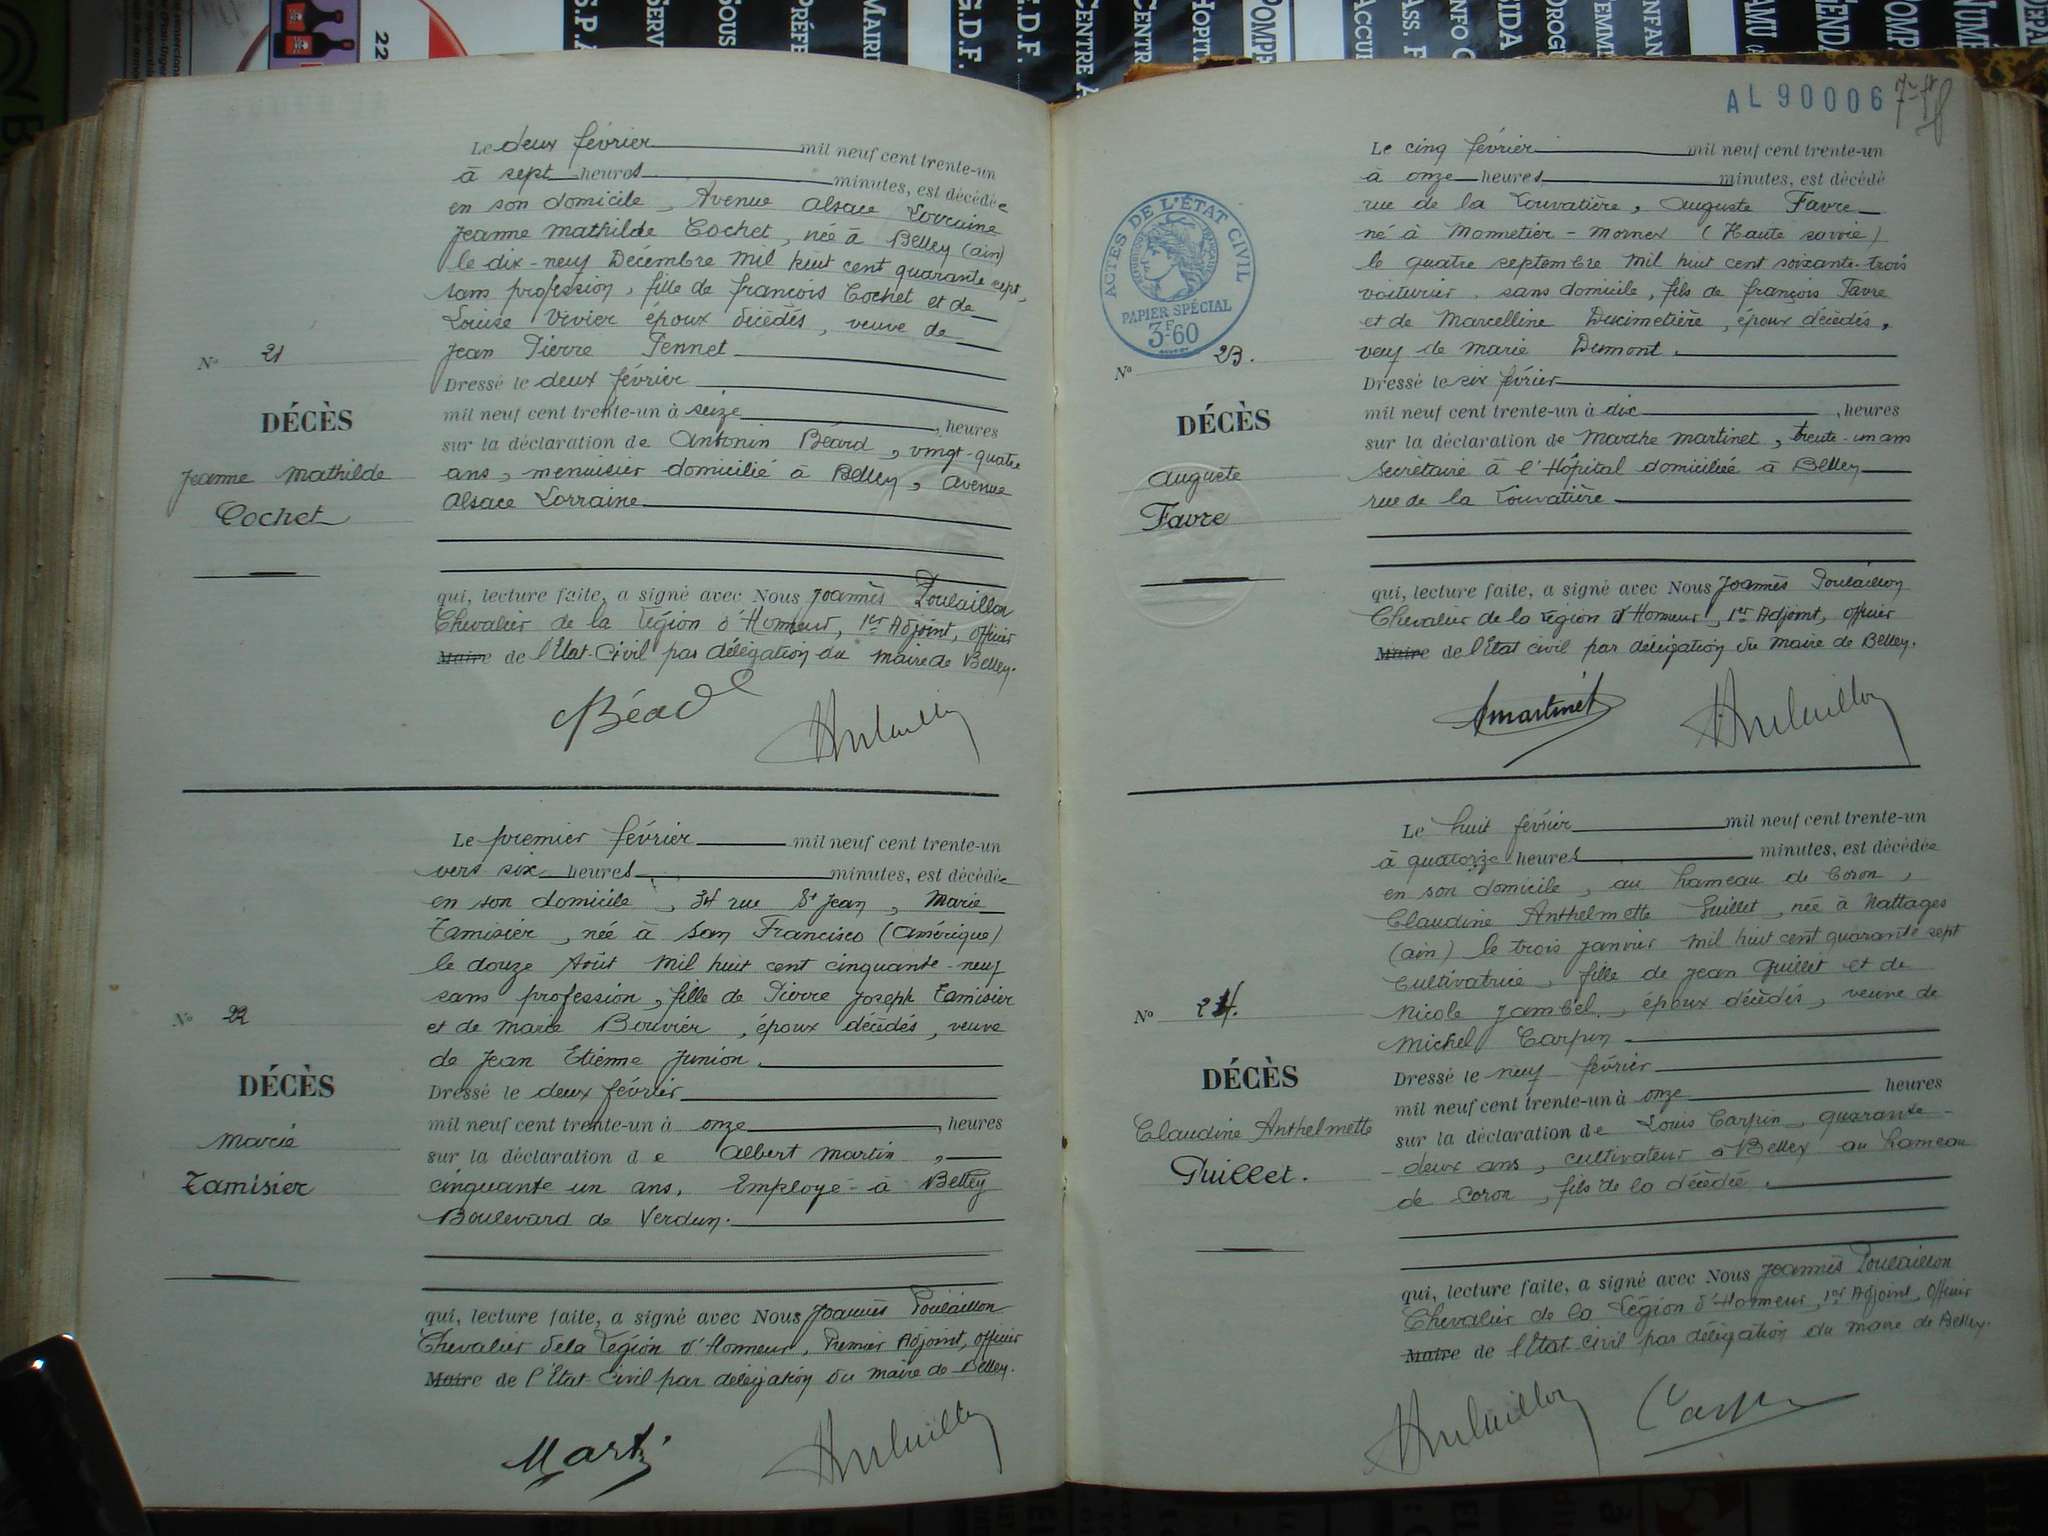 S.P.A
SERV
SOUS
PRÉFE
MAIRIE
G.D.F.
E.D.F.
CENTRE A
CENTR
HOPIT
POMPE
ACCU
ASS. F
INFO
SIDA
DROG
FEMM
ENFAN
SAMU
POMP
NUMÉ
22
Le deux février mil neuf cent trente-un
à sept heures minutes, est décédée
en son domicile, Avenue Alsace Lorraine
Jeanne Mathilde Cochet, née à Belley (ain)
le dix-neuf Décembre mil huit cent quarante sept,
sans profession, fille de françois Cochet et de
Louise Vivier époux décédés, veuve de
Jean Pierre Pennet
Nº 21
DÉCÈS
Jeanne Mathilde
Cochet
Dressé le deux février
mil neuf cent trente-un à seize, heures
sur la déclaration de Antonin Béard, vingt-quatre
ans, menuisier domicilié à Belley, avenue
Alsace Lorraine
qui, lecture faite, a signé avec Nous Joannès Poulaillon
Chevalier de la Légion d'Honneur, 1er Adjoint, officier
Maire de l'Etat-Civil par délégation du maire de Belley.
Béard
Poulaillon
Le premier février mil neuf cent trente-un
vers six heures minutes, est décédée
en son domicile, 34 rue St Jean, Marie
Tamisier, née à San Francisco (amérique)
le douze Août mil huit cent cinquante-neuf
sans profession, fille de Pierre Joseph Tamisier
et de Marie Bouvier, époux décédés, veuve
de Jean Etienne Junion.
Nº 22
DÉCÈS
Marie
Tamisier
Dressé le deux février
mil neuf cent trente-un à onze, heures
sur la déclaration de Albert Martin,
cinquante un ans, Employé à Belley
Boulevard de Verdun.
qui, lecture faite, a signé avec Nous Joannès Poulaillon
Chevalier de la Légion d'Honneur, Premier Adjoint, officier
Maire de l'Etat Civil par délégation du maire de Belley.
Martin
Poulaillon
AL 90006
ACTES DE L'ÉTAT CIVIL
RÉPUBLIQUE FRANÇAISE
PAPIER SPÉCIAL
3F60
Le cinq février mil neuf cent trente-un
à onze heures minutes, est décédé
rue de la Louvatière, Auguste Favre
né à Monnetier-Mornex (Haute savoie)
le quatre septembre mil huit cent soixante-trois
voiturier, sans domicile, fils de françois Favre
et de Marcelline Descimetière, époux décédés,
veuf de Marie Dumont.
Nº 23.
DÉCÈS
Auguste
Favre
Dressé le six février
mil neuf cent trente-un à dix, heures
sur la déclaration de Marthe Martinet, trente-un ans
secrétaire à l'Hôpital domiciliée à Belley
rue de la Louvatière
qui, lecture faite, a signé avec Nous Joannès Poulaillon
Chevalier de la Légion d'Honneur, 1er Adjoint, officier
Maire de l'Etat civil par délégation du maire de Belley.
Martinet
Poulaillon
Le huit février mil neuf cent trente-un
à quatorze heures minutes, est décédée
en son domicile, au hameau de Coron,
Claudine Anthelmette Guillet, née à Nattages
(ain) le trois janvier mil huit cent quarante sept
cultivatrice, fille de Jean Guillet et de
Nicole Jambel, époux décédés, veuve de
Michel Carpin
Nº 24.
DÉCÈS
Claudine Anthelmette
Guillet.
Dressé le neuf février
mil neuf cent trente-un à onze heures
sur la déclaration de Louis Carpin, quarante-
deux ans, cultivateur à Belley au hameau
de Coron, fils de la décédée.
qui, lecture faite, a signé avec Nous Joannès Poulaillon
Chevalier de la Légion d'Honneur, 1er Adjoint, officier
Maire de l'Etat-Civil par délégation du maire de Belley.
Poulaillon
Carpin